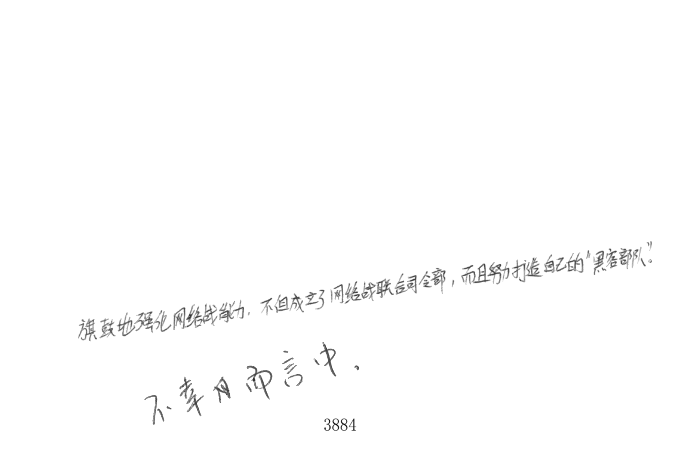 旗鼓地强化网络战能力.不但成立了网络战联合司令部,而且努力打造自己的"黑客部队".
不幸月而言中.
3884